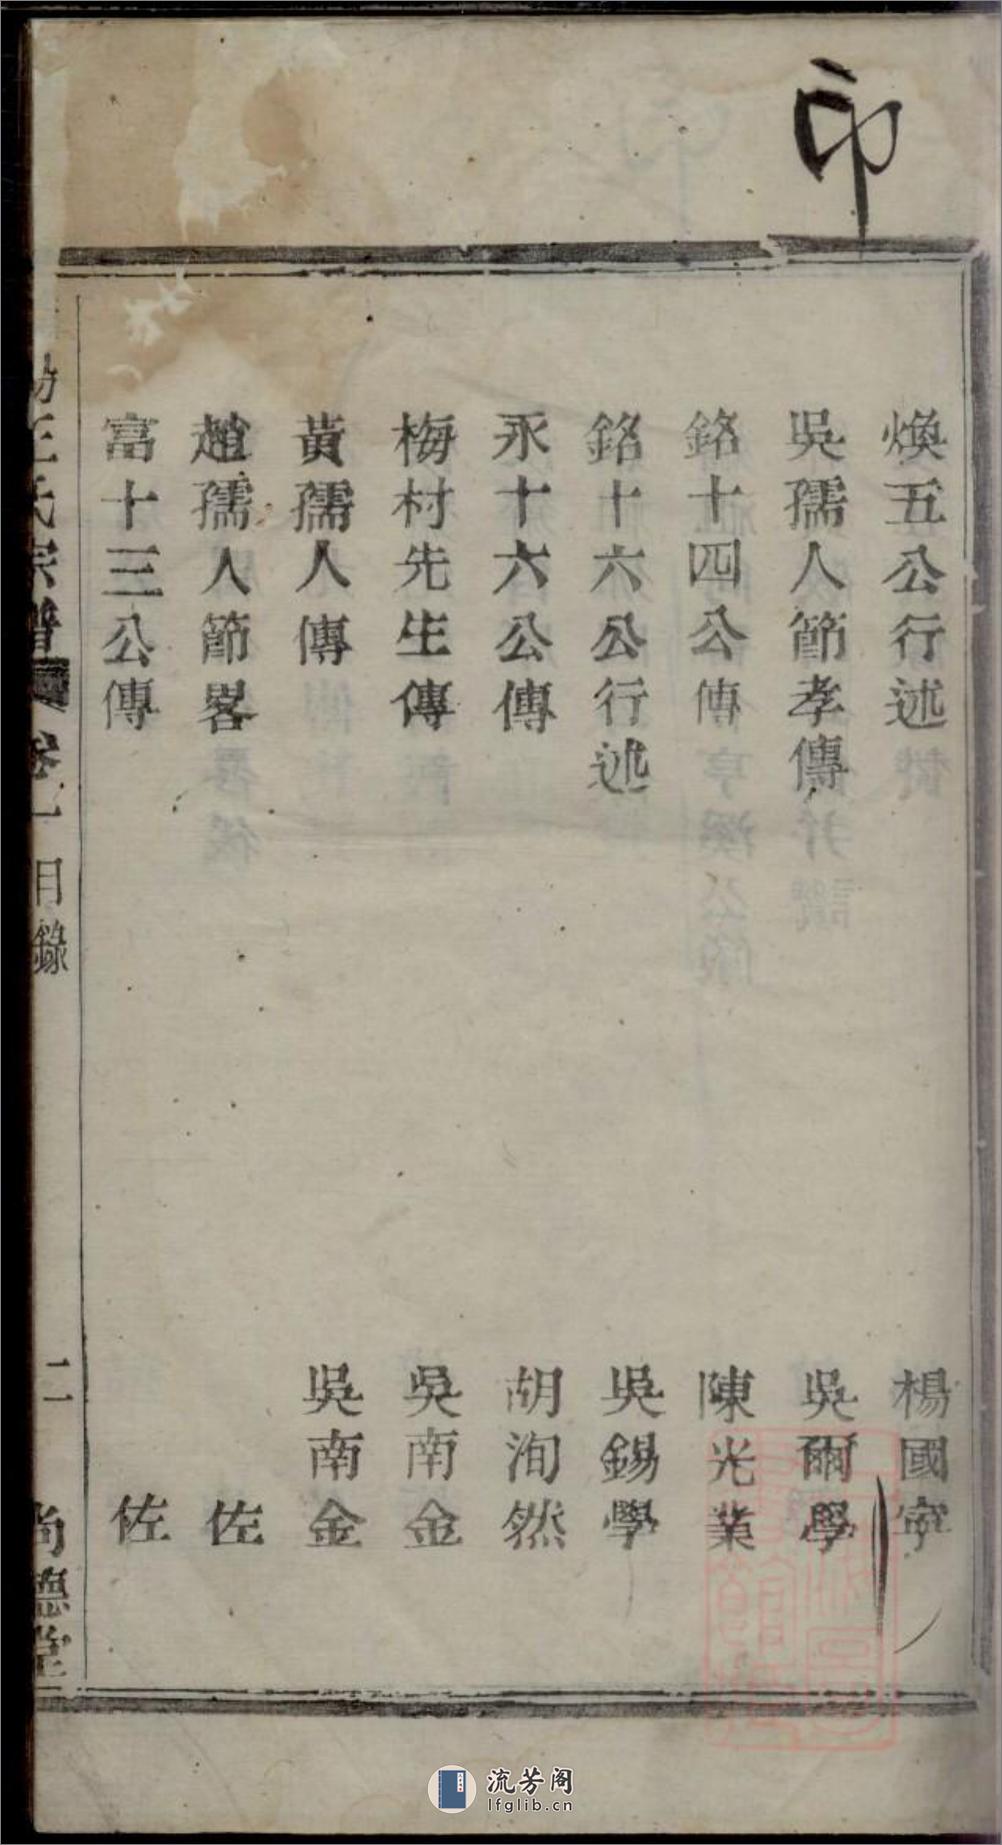 印
煥五公行述 楊國寧
吳孺人節孝傳 吳爾學
銘十四公傳 陳光業
銘十六公行述 吳錫學
永十六公傳 胡洵然
梅村先生傳 吳南金
黃孺人傳 吳南金
趙孺人節畧 佐
富十三公傳 佐
王氏宗譜 卷一 目錄 二 尚德堂
流芳阁
lfglib.cn